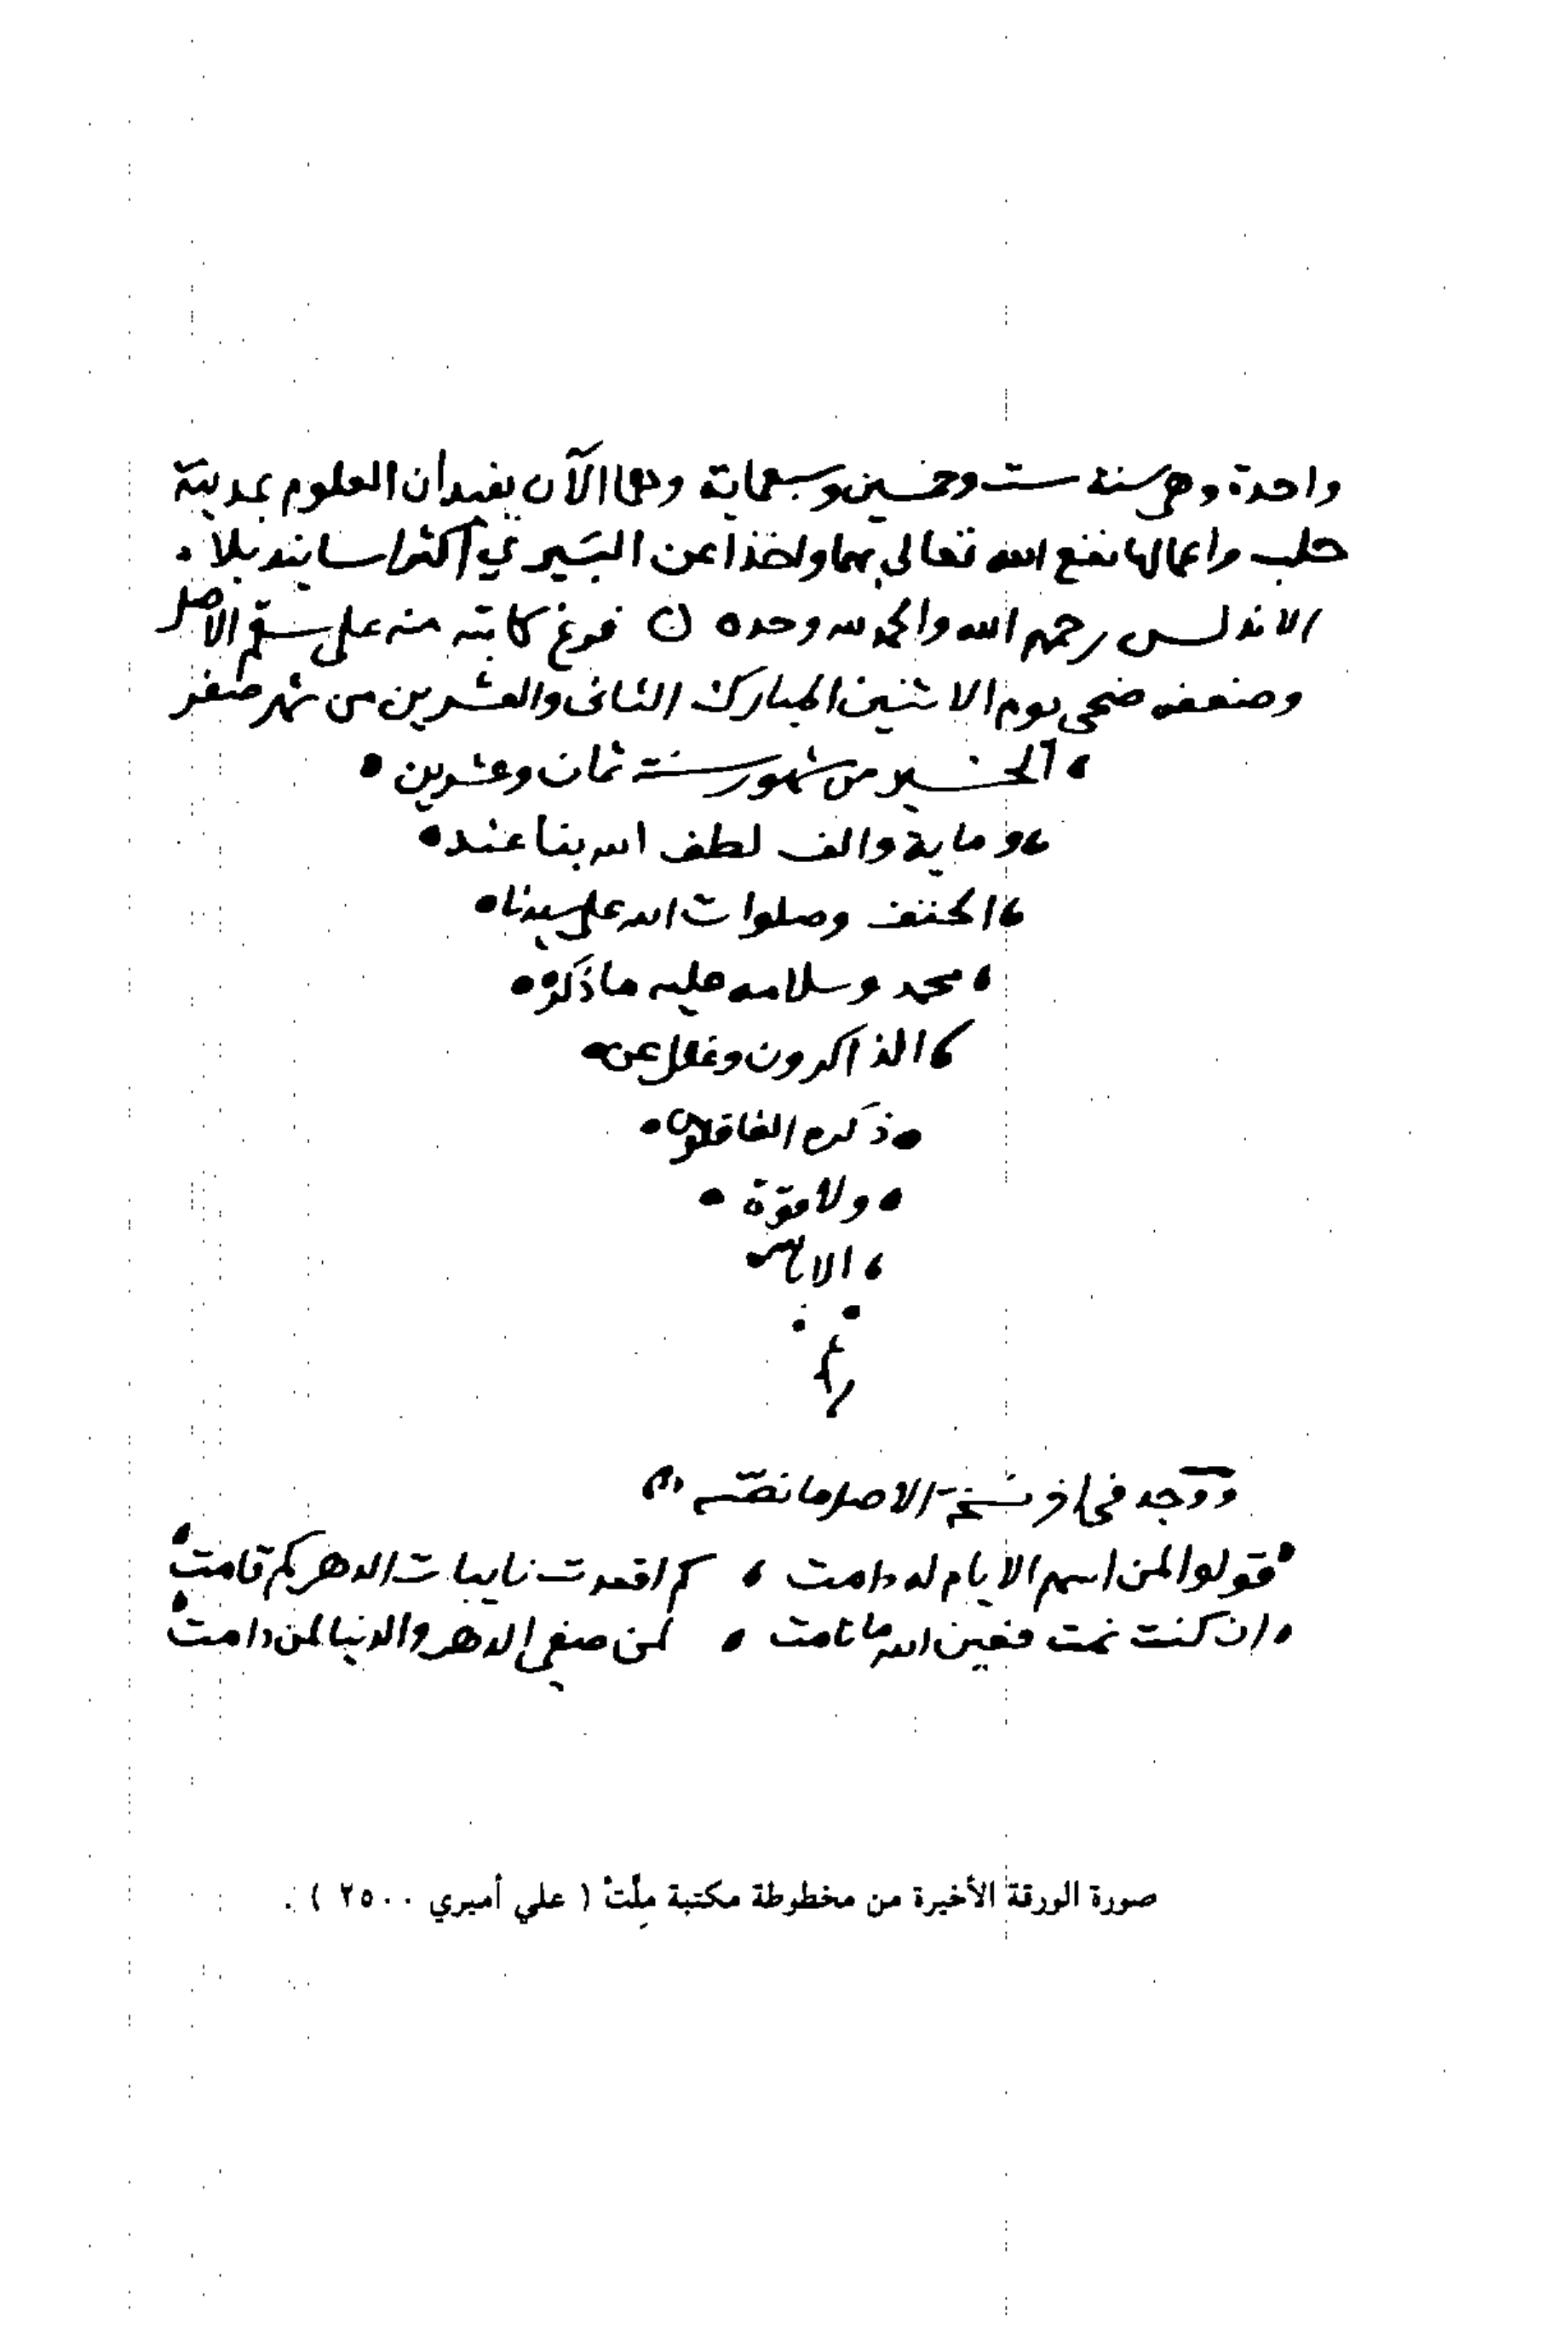 واحدة وهي سنة ست وخمسين وسبعماية وهما الآن يفيدان العلوم بمدينة
حلب واعمالها نفع الله تعالى بهما واخذا عن البَيري اكثر اسانيد بلاد
الاندلس رحمه الله والحمد لله وحده فرغ كاتبه منه على سقم الاصل
وضعفه ضحى يوم الاثنين المبارك الثانى والعشرين من شهر صفر
الخير من شهور سنة ثمان وعشرين
وماية والف لطف الله بنا عند
الحتف وصلوات الله على سيدنا
محمد وسلامه عليه ما ذَكَره
الذاكرون وغفل عن
ذكره الغافلون
ولا قوّة
الا بالله
ووجد فى اخر نسخة الاصل ما نصّه
قولوا لمن اسهم الايام له دامت كم اقعدت نايبات الدهر كم قامت
ان كنت نمت فعين الله ما نامت لمن صفى الدهر والدنيا لمن دامت
صورة الورقة الأخيرة من مخطوطة مكتبة مِلّتْ ( علي أميري ٢٥٠٠ ) .